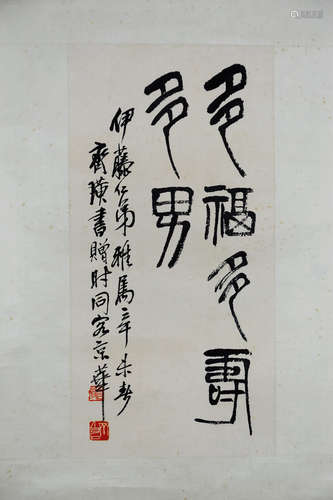 多福多壽
多男
伊藤仁弟雅屬 三年朱書
齊璜書贈時同客京華